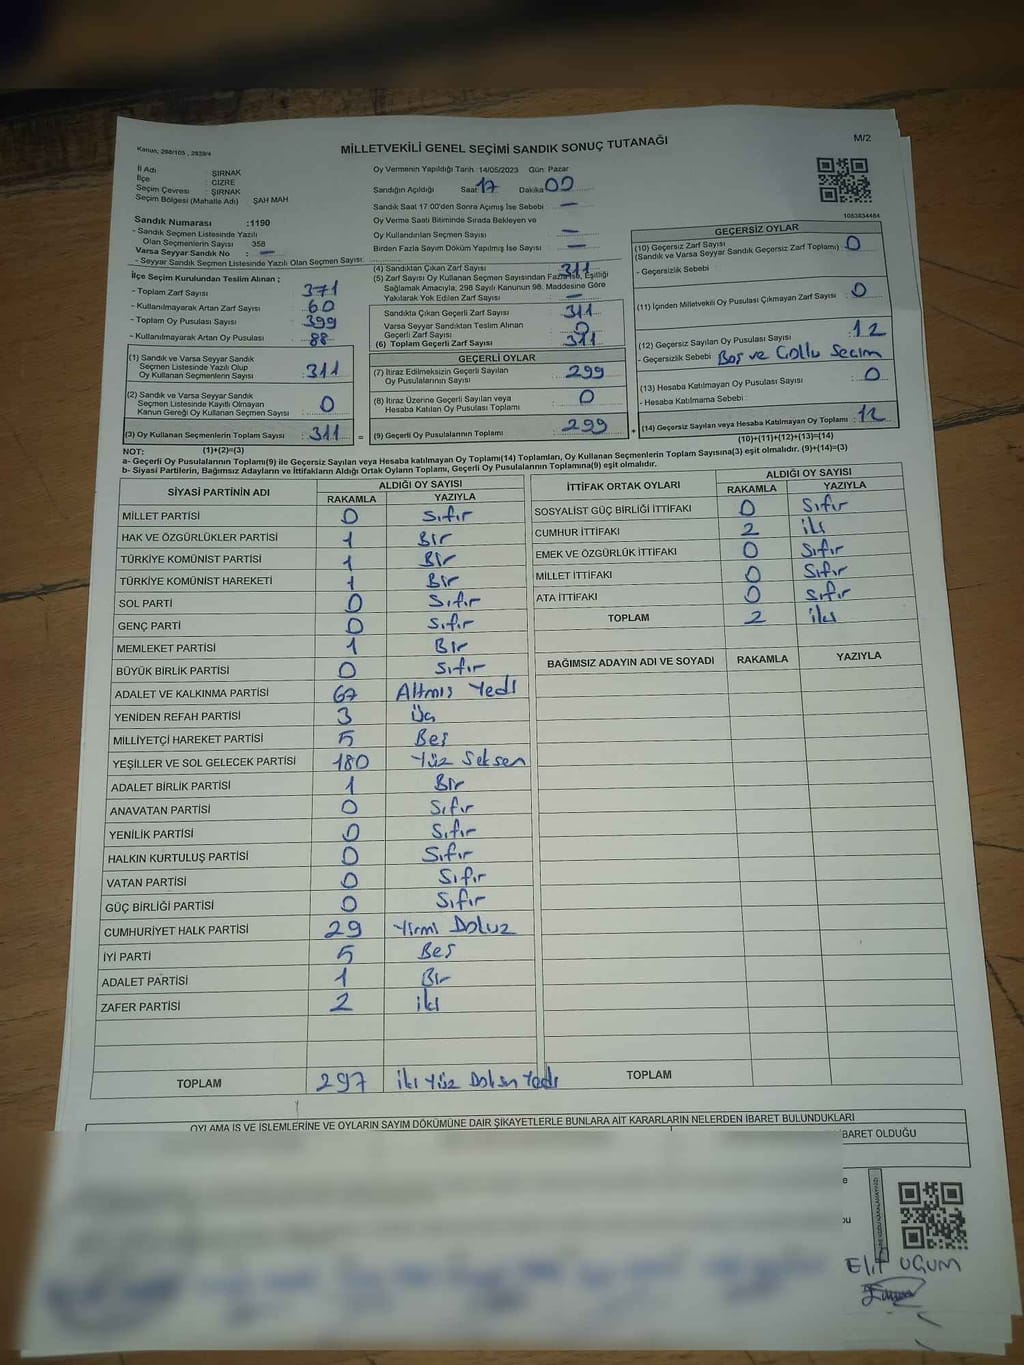 MİLLETVEKİLİ GENEL SEÇİMİ SANDIK SONUÇ TUTANAĞI
M/2
Kanun, 298/105 , 2839/4
İl Adı : ŞIRNAK
İlçe : CİZRE
Seçim Çevresi : ŞIRNAK
Seçim Bölgesi (Mahalle Adı) ŞAH MAH
Sandık Numarası :1190
- Sandık Seçmen Listesinde Yazılı
Olan Seçmenlerin Sayısı 358
Varsa Seyyar Sandık No : —
- Seyyar Sandık Seçmen Listesinde Yazılı Olan Seçmen Sayısı:
Oy Vermenin Yapıldığı Tarih 14/05/2023 Gün: Pazar
Sandığın Açıldığı Saat 17 Dakika 00
Sandık Saat 17:00'den Sonra Açımış İse Sebebi —
Oy Verme Saati Bitiminde Sırada Bekleyen ve
Oy Kullandırılan Seçmen Sayısı —
Birden Fazla Sayım Döküm Yapılmış İse Sayısı —
1083834484
İlçe Seçim Kurulundan Teslim Alınan ;
- Toplam Zarf Sayısı 371
- Kullanılmayarak Artan Zarf Sayısı 60
- Toplam Oy Pusulası Sayısı 399
- Kullanılmayarak Artan Oy Pusulası 88
(1) Sandık ve Varsa Seyyar Sandık
Seçmen Listesinde Yazılı Olup
Oy Kullanan Seçmenlerin Sayısı : 311
(2) Sandık ve Varsa Seyyar Sandık
Seçmen Listesinde Kayıtlı Olmayan
Kanun Gereği Oy Kullanan Seçmen Sayısı : 0
(3) Oy Kullanan Seçmenlerin Toplam Sayısı : 311 =
(4) Sandıktan Çıkan Zarf Sayısı 311
(5) Zarf Sayısı Oy Kullanan Seçmen Sayısından Fazla İse, Eşitliği
Sağlamak Amacıyla, 298 Sayılı Kanunun 98. Maddesine Göre
Yakılarak Yok Edilen Zarf Sayısı —
Sandıkta Çıkan Geçerli Zarf Sayısı 311
Varsa Seyyar Sandıktan Teslim Alınan
Geçerli Zarf Sayısı 0
(6) Toplam Geçerli Zarf Sayısı 311
GEÇERLİ OYLAR
(7) İtiraz Edilmeksizin Geçerli Sayılan
Oy Pusulalarının Sayısı : 299
(8) İtiraz Üzerine Geçerli Sayılan veya
Hesaba Katılan Oy Pusulası Toplamı : 0
(9) Geçerli Oy Pusulalarının Toplamı : 299 +
GEÇERSİZ OYLAR
(10) Geçersiz Zarf Sayısı : 0
(Sandık ve Varsa Seyyar Sandık Geçersiz Zarf Toplamı)
- Geçersizlik Sebebi :
(11) İçinden Milletvekili Oy Pusulası Çıkmayan Zarf Sayısı : 0
(12) Geçersiz Sayılan Oy Pusulası Sayısı : 12
- Geçersizlik Sebebi : Boş ve Çollu Seçim
(13) Hesaba Katılmayan Oy Pusulası Sayısı : 0
- Hesaba Katılmama Sebebi :
(14) Geçersiz Sayılan veya Hesaba Katılmayan Oy Toplamı : 12
NOT: (1)+(2)=(3)
(10)+(11)+(12)+(13)=(14)
a- Geçerli Oy Pusulalarının Toplamı(9) ile Geçersiz Sayılan veya Hesaba Katılmayan Oy Toplamı(14) Toplamları, Oy Kullanan Seçmenlerin Toplam Sayısına(3) eşit olmalıdır. (9)+(14)=(3)
b- Siyasi Partilerin, Bağımsız Adayların ve İttifakların Aldığı Oy Sayıların Toplamı, Geçerli Oy Pusulalarının Toplamına(9) eşit olmalıdır.
SİYASİ PARTİNİN ADI ALDIĞI OY SAYISI
RAKAMLA YAZIYLA
MİLLET PARTİSİ 0 Sıfır
HAK VE ÖZGÜRLÜKLER PARTİSİ 1 Bir
TÜRKİYE KOMÜNİST PARTİSİ 1 Bir
TÜRKİYE KOMÜNİST HAREKETİ 1 Bir
SOL PARTİ 0 Sıfır
GENÇ PARTİ 0 Sıfır
MEMLEKET PARTİSİ 1 Bir
BÜYÜK BİRLİK PARTİSİ 0 Sıfır
ADALET VE KALKINMA PARTİSİ 67 Altmış Yedi
YENİDEN REFAH PARTİSİ 3 Üç
MİLLİYETÇİ HAREKET PARTİSİ 5 Beş
YEŞİLLER VE SOL GELECEK PARTİSİ 180 Yüz Seksen
ADALET BİRLİK PARTİSİ 1 Bir
ANAVATAN PARTİSİ 0 Sıfır
YENİLİK PARTİSİ 0 Sıfır
HALKIN KURTULUŞ PARTİSİ 0 Sıfır
VATAN PARTİSİ 0 Sıfır
GÜÇ BİRLİĞİ PARTİSİ 0 Sıfır
CUMHURİYET HALK PARTİSİ 29 Yirmi Dokuz
İYİ PARTİ 5 Beş
ADALET PARTİSİ 1 Bir
ZAFER PARTİSİ 2 iki
TOPLAM 297 iki Yüz Doksan Yedi
İTTİFAK ORTAK OYLARI ALDIĞI OY SAYISI
RAKAMLA YAZIYLA
SOSYALİST GÜÇ BİRLİĞİ İTTİFAKI 0 Sıfır
CUMHUR İTTİFAKI 2 iki
EMEK VE ÖZGÜRLÜK İTTİFAKI 0 Sıfır
MİLLET İTTİFAKI 0 Sıfır
ATA İTTİFAKI 0 Sıfır
TOPLAM 2 iki
BAĞIMSIZ ADAYIN ADI VE SOYADI RAKAMLA YAZIYLA
TOPLAM
OYLAMA İŞ VE İŞLEMLERİNE VE OYLARIN SAYIM DÖKÜMÜNE DAİR ŞİKAYETLERLE BUNLARA AİT KARARLARIN NELERDEN İBARET BULUNDUKLARI
İBARET OLDUĞU
Elif UGUM